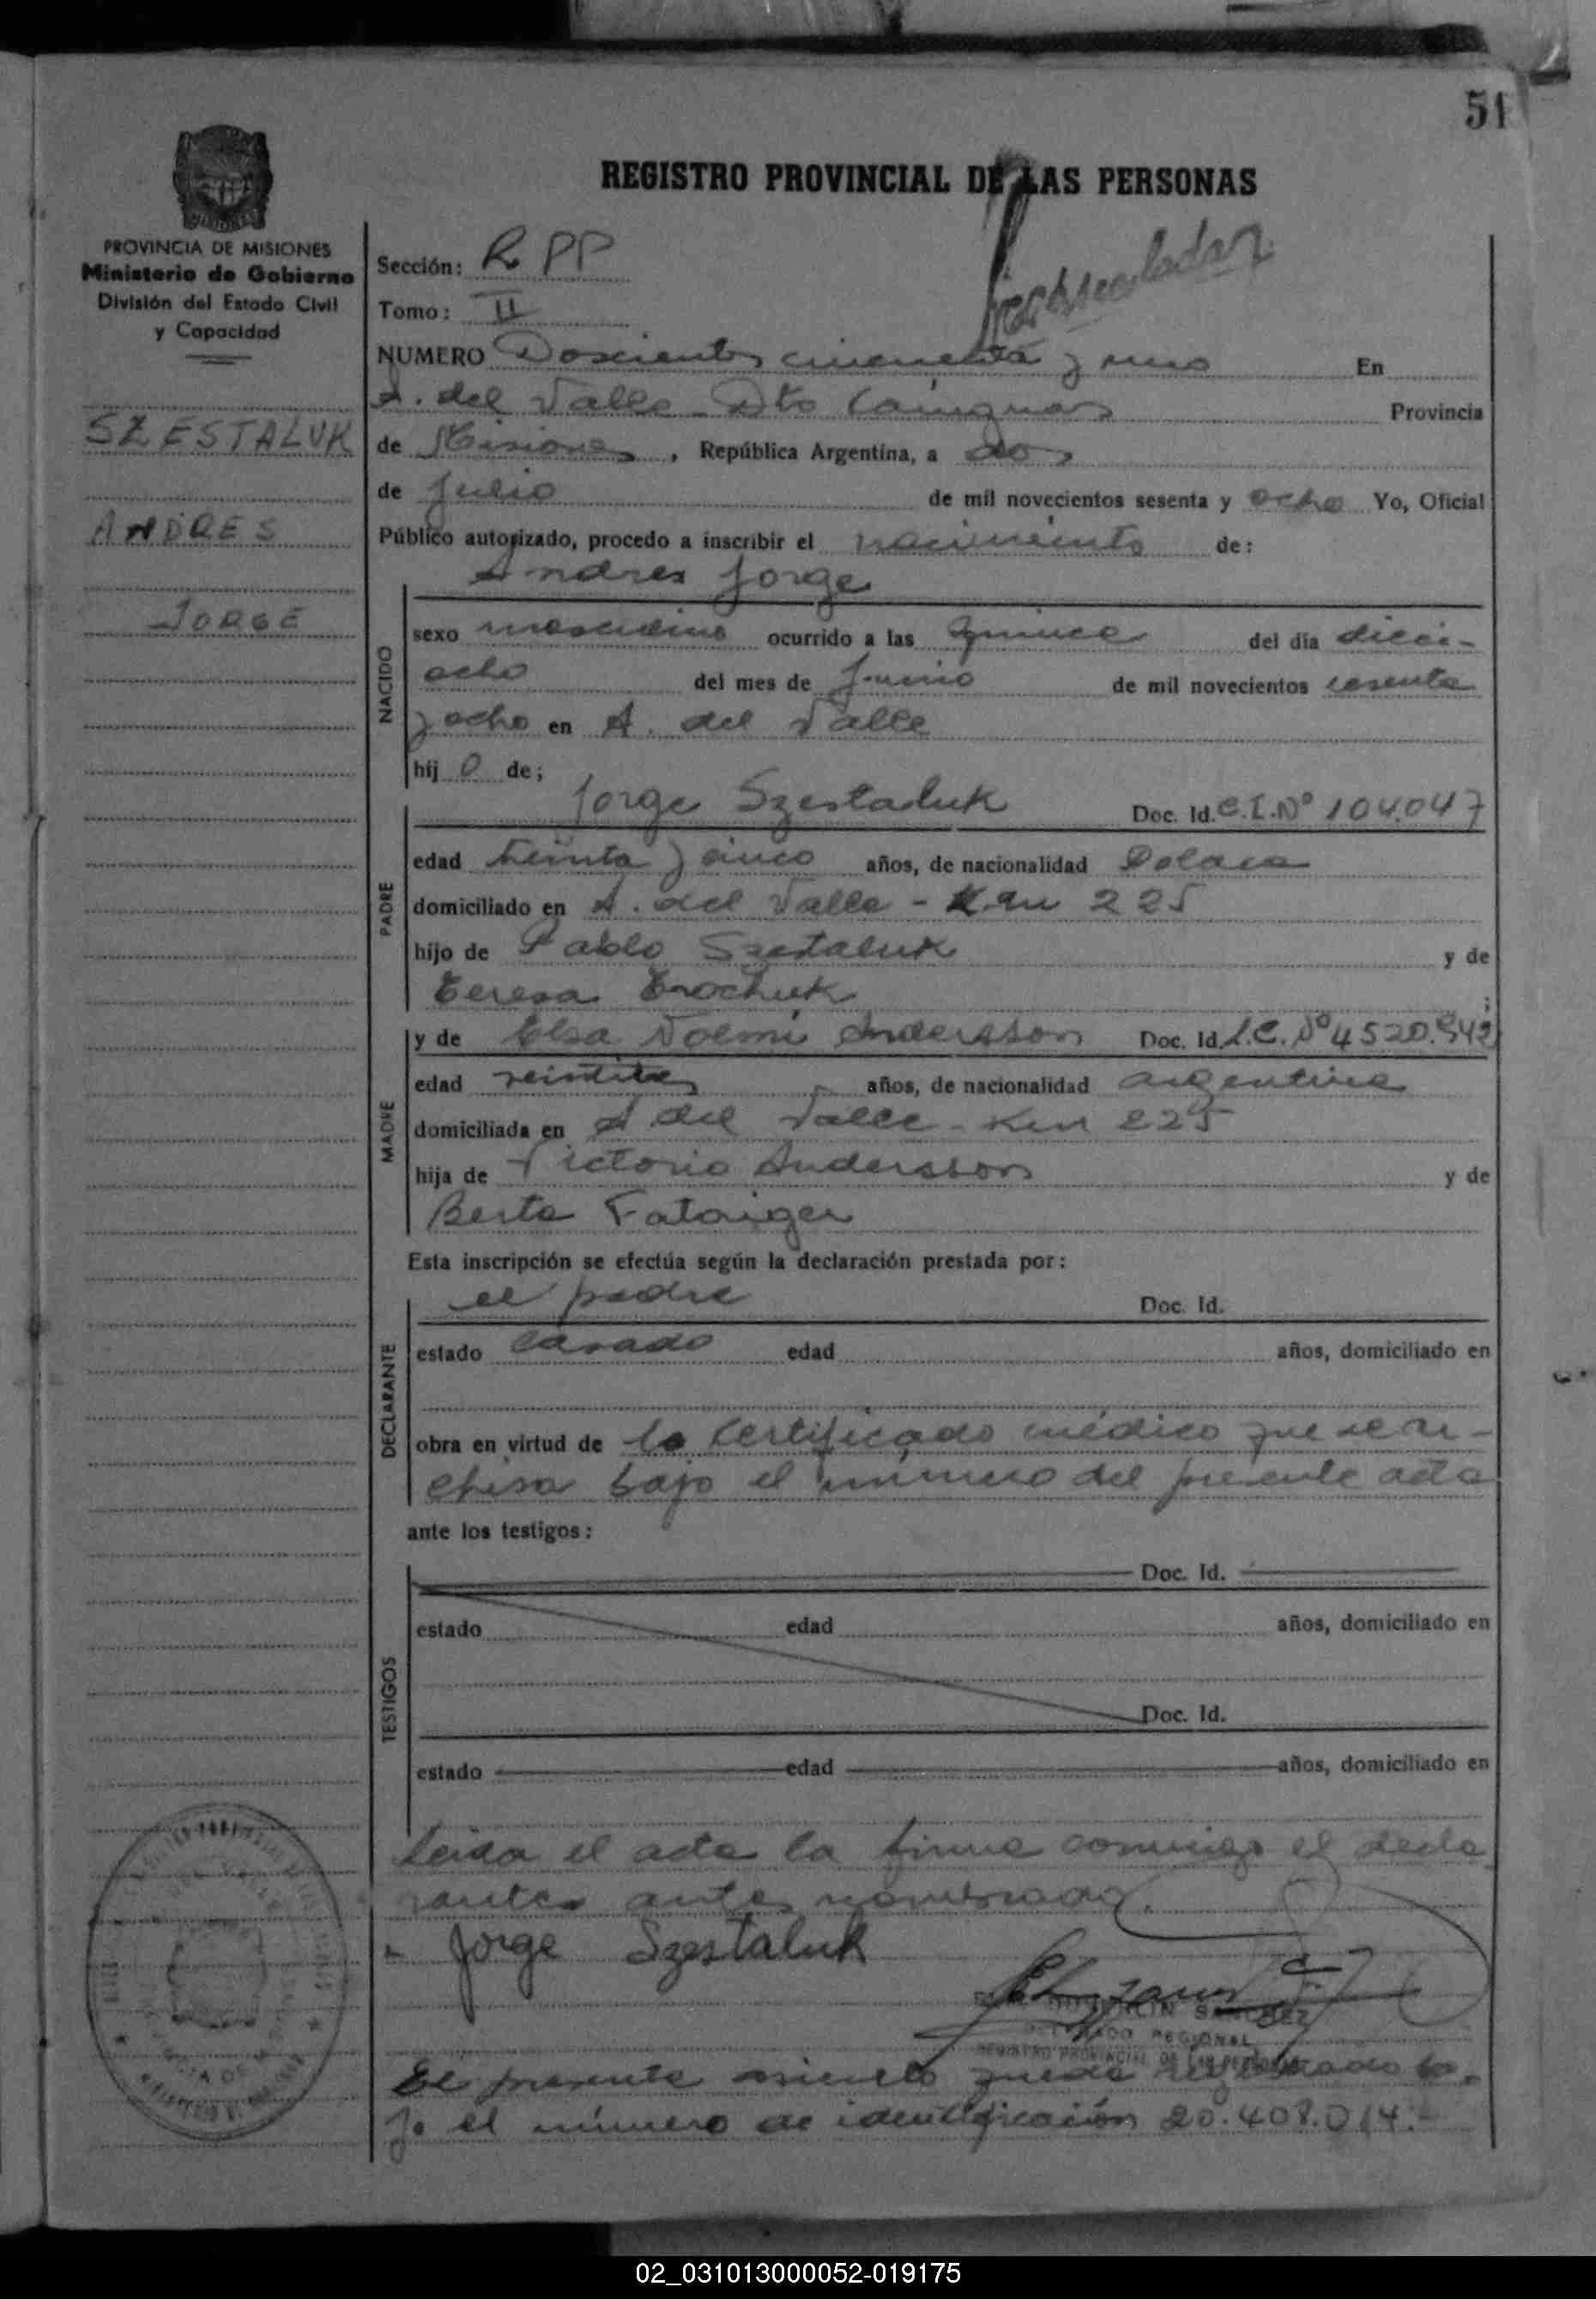 51
REGISTRO PROVINCIAL DE LAS PERSONAS
PROVINCIA DE MISIONES
Ministerio de Gobierno
División del Estado Civil
y Capacidad
SZESTALUK
ANDRES
JORGE
Sección: R PP
Tomo: II
NUMERO Doscientos cincuenta y uno En
A. del Valle - Dto Cainguas Provincia
de Misiones, República Argentina, a dos
de Julio de mil novecientos sesenta y ocho Yo, Oficial
Público autorizado, procedo a inscribir el nacimiento de:
Andres Jorge
NACIDO
sexo masculino ocurrido a las quince del día dieci-
ocho del mes de Junio de mil novecientos sesenta
y ocho en A. del Valle
hij o de;
PADRE
Jorge Szestaluk Doc. Id. C.I. Nº 104.047
edad treinta y cinco años, de nacionalidad Polaca
domiciliado en A. del Valle - Km 225
hijo de Pablo Szestaluk y de
Teresa ;
MADRE
y de Elsa Noemi Andersson Doc. Id. L.C. Nº 4520.942
edad años, de nacionalidad argentina
domiciliada en A del Valle - Km 225
hija de Victorio Andersson y de
Berta
Esta inscripción se efectúa según la declaración prestada por:
DECLARANTE
el padre Doc. Id.
estado casado edad años, domiciliado en
obra en virtud de lo certificado médico que se ar-
chiva bajo el número del presente acta
ante los testigos:
TESTIGOS
Doc. Id.
estado edad años, domiciliado en
Doc. Id.
estado edad años, domiciliado en
Leida el acta la firma conmigo el decla
rantes antes nombrado.
Jorge Szestaluk
SANCHEZ
DELEGADO REGIONAL
REGISTRO PROVINCIAL DE LAS PERSONAS
El presente asiento queda registrado ba-
jo el número de identificación 20.408.014.-
02_031013000052-019175